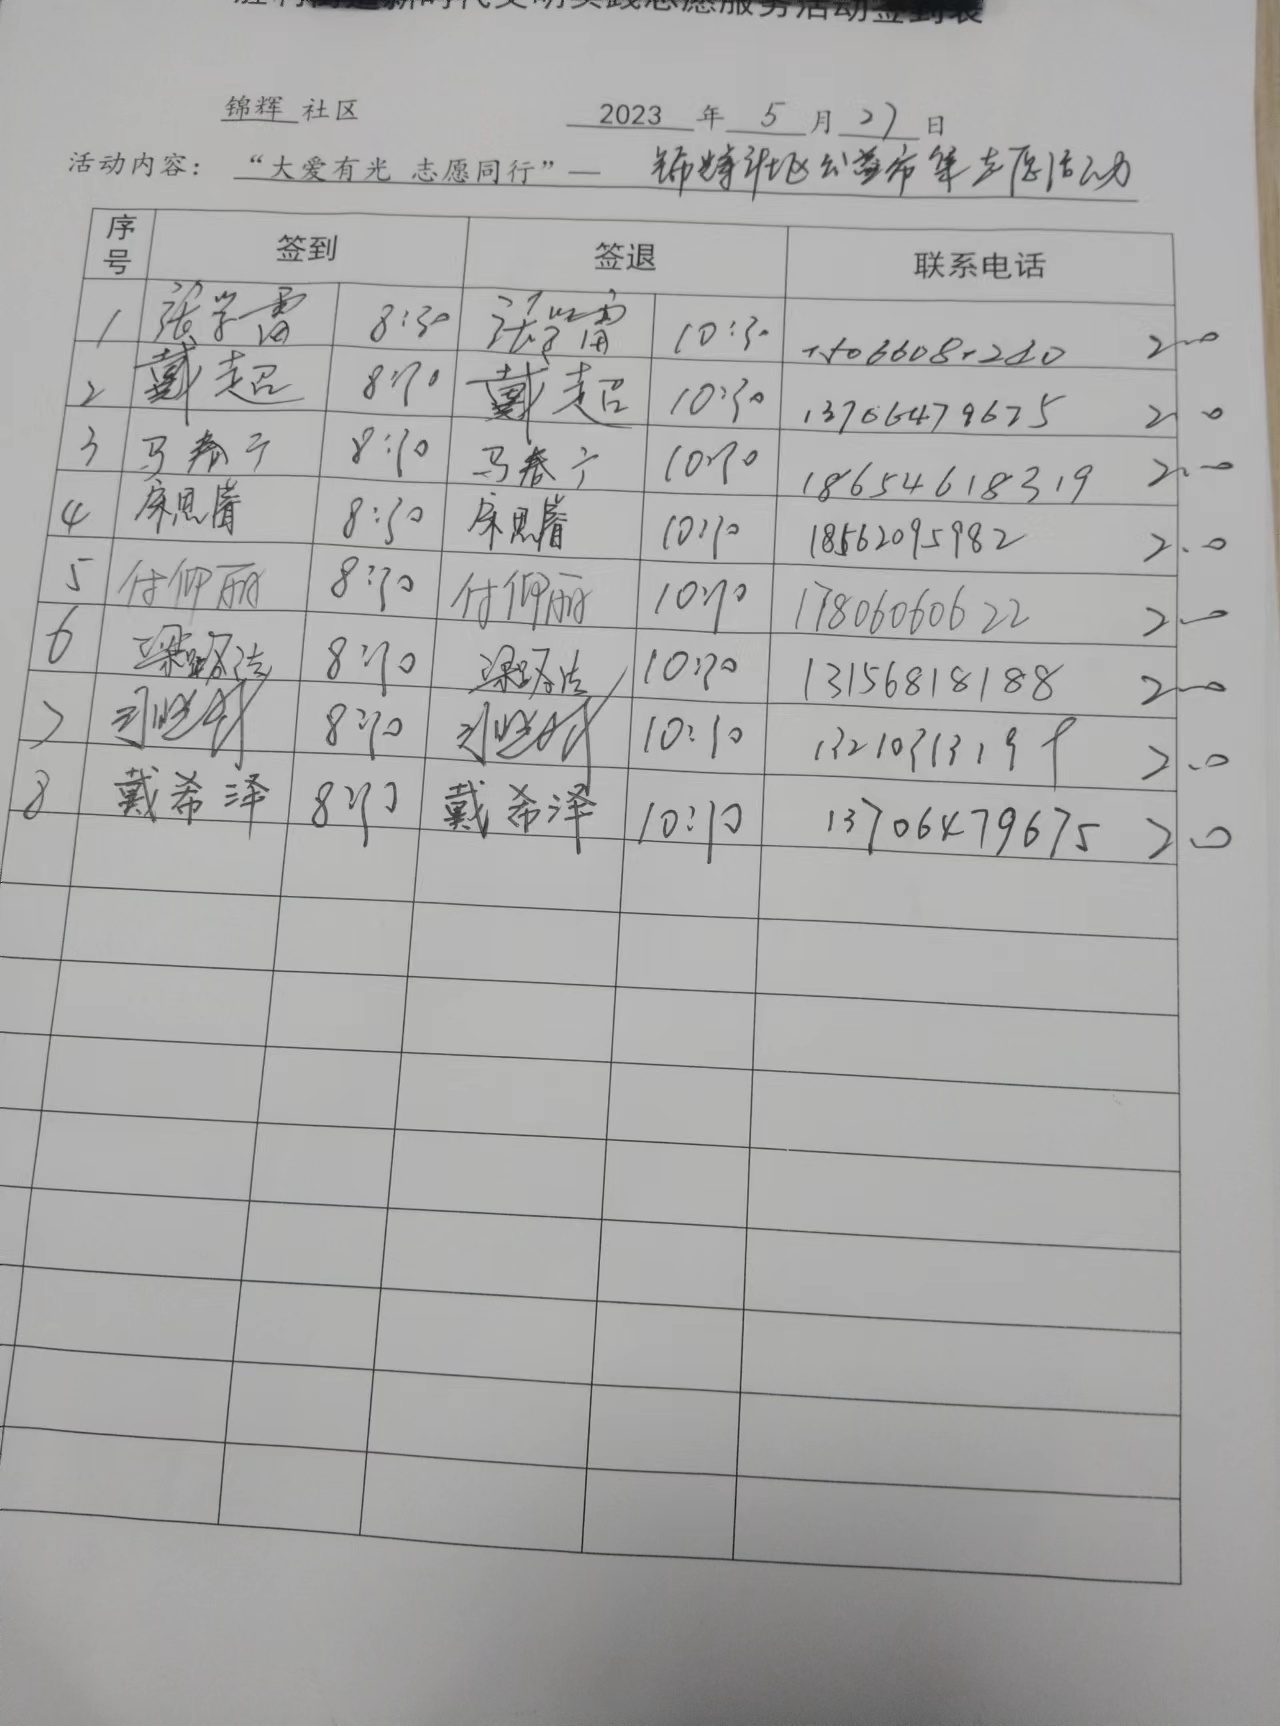 胜利街道新时代文明实践志愿服务活动签到表
锦辉 社区 2023 年 5 月 27 日
活动内容： “大爱有光 志愿同行”— 锦辉社区公益市集志愿活动
序号 签到 签退 联系电话
1 张学雷 8:30 张学雷 10:30 2.0
2 戴超 8:30 戴超 10:30 13706479675 2.0
3 马春宁 8:30 马春宁 10:30 18654618319 2.0
4 8:30 10:30 18562095982 2.0
5 付仰丽 8:30 付仰丽 10:30 17806060622 2.0
6 8:30 10:30 13156818188 2.0
7 8:30 10:30 2.0
8 戴希泽 8:30 戴希泽 10:30 13706479675 2.0